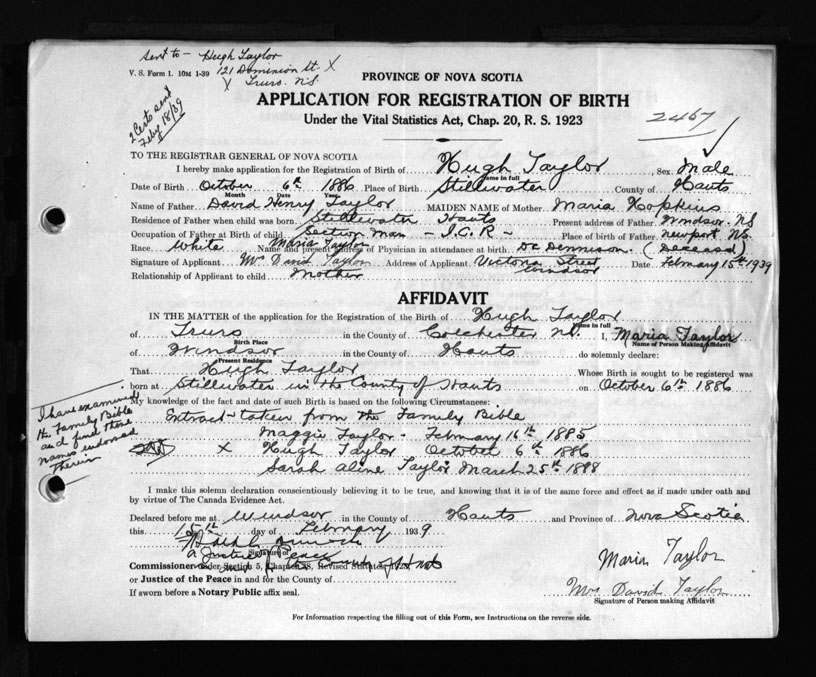 sent to - Hugh Taylor
V. S. Form 1. 10M 1-39 121 Dominion St. X
X Truro. N.S.
2 Certs sent
Feby 18/39
PROVINCE OF NOVA SCOTIA
APPLICATION FOR REGISTRATION OF BIRTH
Under the Vital Statistics Act, Chap. 20, R. S. 1923
2467
TO THE REGISTRAR GENERAL OF NOVA SCOTIA
I hereby make application for the Registration of Birth of Hugh Taylor Sex Male
Name in full
Date of Birth October 6th 1886 Place of Birth Stillwater County of Hants
Month Date Year
Name of Father David Henry Taylor MAIDEN NAME of Mother Maria Hopkins
Residence of Father when child was born Stillwater Hants Present address of Father Windsor NS
Occupation of Father at Birth of child Section Man - I.C.R - Place of birth of Father Newport N.S.
Race White Name and present address of Physician in attendance at birth Dr Dennison. (Deceased)
Maria Taylor
Signature of Applicant Mrs David Taylor Address of Applicant Victoria Street Date February 15th 1939
Windsor
Relationship of Applicant to child Mother
AFFIDAVIT
IN THE MATTER of the application for the Registration of the Birth of Hugh Taylor
Name in full
of Truro in the County of Colchester NS. I, Maria Taylor
Birth Place Name of Person Making Affidavit
of Windsor in the County of Hants do solemnly declare:
Present Residence
That Hugh Taylor Whose Birth is sought to be registered was
born at Stillwater in the County of Hants on October 6th 1886
My knowledge of the fact and date of such Birth is based on the following Circumstances:
I have examined
the Family Bible
and find these
names indorsed
therein
Extract taken from the Family Bible
Maggie Taylor - February 16th 1885
X Hugh Taylor October 6th 1886
Sarah Aline Taylor March 25th 1888
I make this solemn declaration conscientiously believing it to be true, and knowing that it is of the same force and effect as if made under oath and
by virtue of The Canada Evidence Act.
Declared before me at Windsor in the County of Hants and Province of Nova Scotia
this 15th day of February 1939
Signature of
a Justice of Peace
Commissioner under Section 5, Chapter 38, Revised Statutes, 1923
or Justice of the Peace in and for the County of
If sworn before a Notary Public affix seal.
Maria Taylor
Mrs David Taylor
Signature of Person making Affidavit
For Information respecting the filling out of this Form, see Instructions on the reverse side.